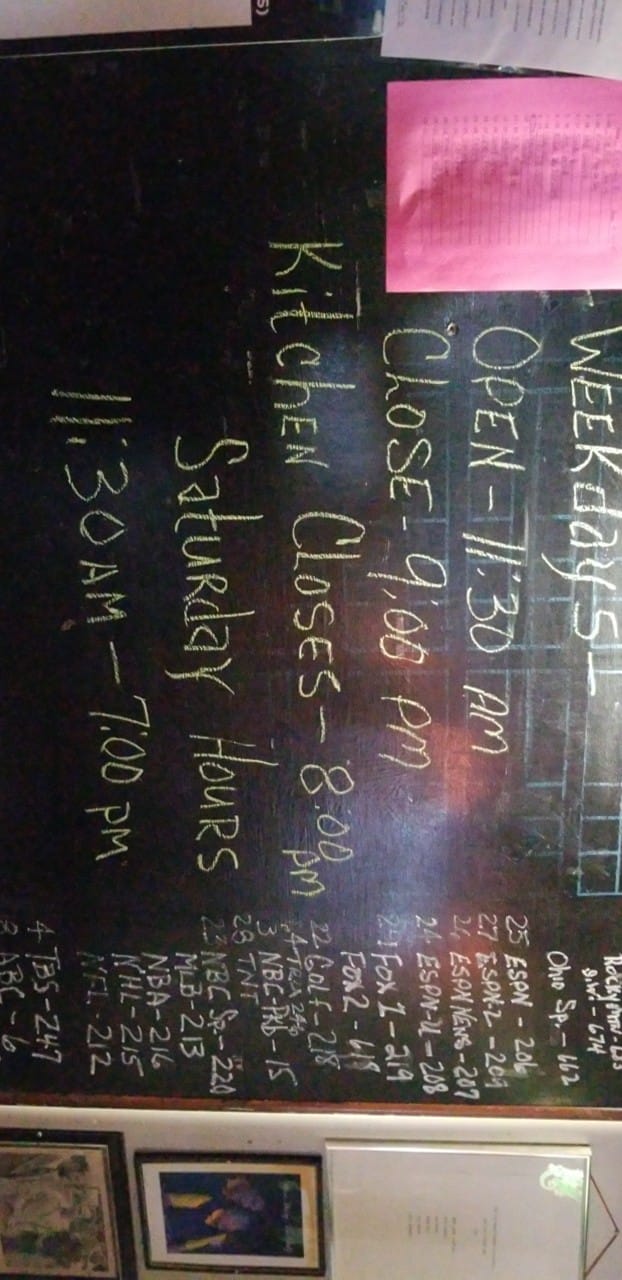 WEEKdAYS -
OPEN - 11:30 AM
CLOSE - 9:00 PM
KitchEN CLOSES - 8:00 pm
SatuRdaY HouRS
11:30 AM - 7:00 pm
674
Ohio Sp. - 662
25 ESPN - 206
27 ESPN2 - 209
ESPN NEWS - 207
24 ESPN-U - 208
FOX 1 - 219
FOX 2 - 618
22 GOLF - 218
3 NBC - 15
28 TNT
23 NBC Sp - 220
MLB - 213
NBA - 216
NHL - 215
NFL - 212
4 TBS - 247
8 ABC - 6